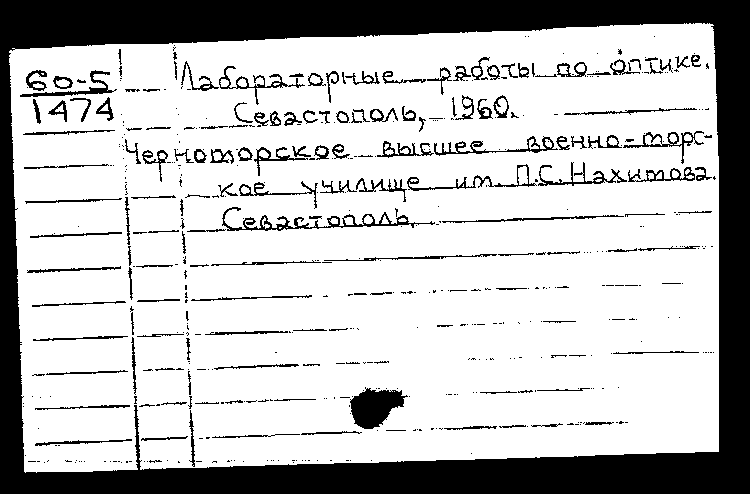 60-5
1474
Лабораторные работы по оптике.
Севастополь, 1960.
Черноморское высшее военно-морс-
кое училище им. П.С. Нахимова.
Севастополь.